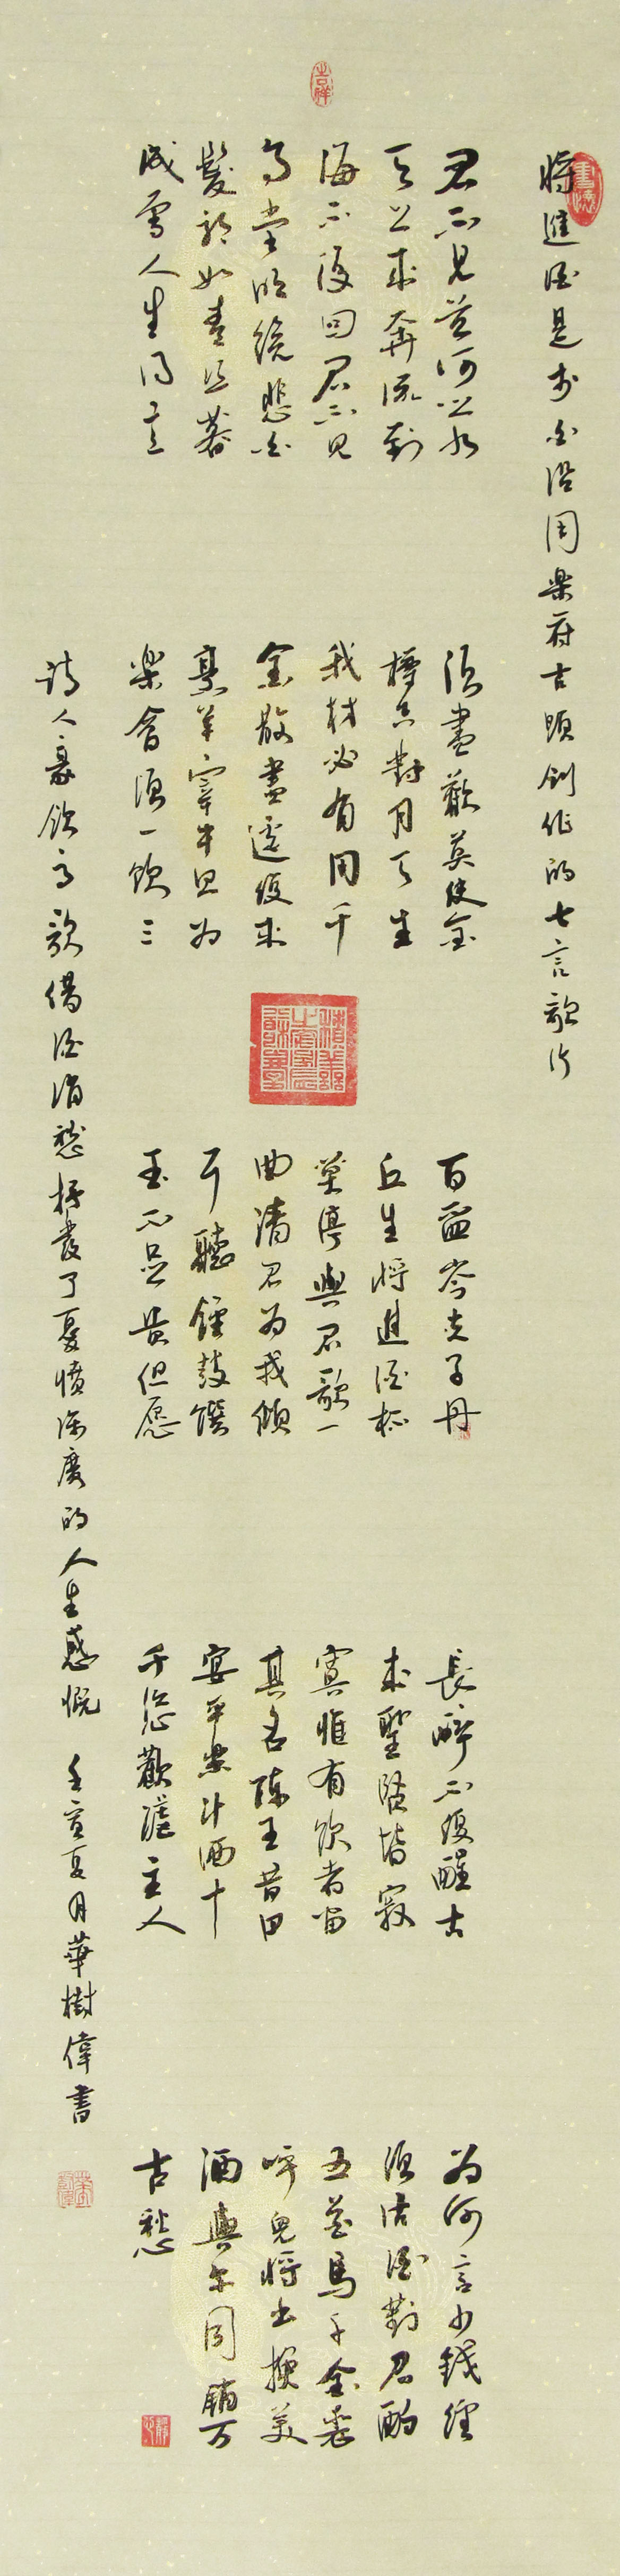 將進酒是李白沿用樂府古題創作的七言歌行
君不見黃河之水
天上來奔流到
海不復回君不見
高堂明鏡悲白
髮朝如青絲暮
成雪人生得意
須盡歡莫使金
樽空對月天生
我材必有用千
金散盡還復來
烹羊宰牛且為
樂會須一飲三
百杯岑夫子丹
丘生將進酒杯
莫停與君歌一
曲請君為我傾
耳聽鐘鼓饌
玉不足貴但愿
長醉不復醒古
來聖賢皆寂
寞惟有飲者留
其名陳王昔日
宴平樂斗酒十
千恣歡謔主人
為何言少錢徑
須沽酒對君酌
五花馬千金裘
呼兒將出換美
酒與尔同銷万
古愁
詩人豪飲高歌借酒消愁抒發了憂憤深廣的人生感慨 壬寅夏月華樹偉書
吉祥